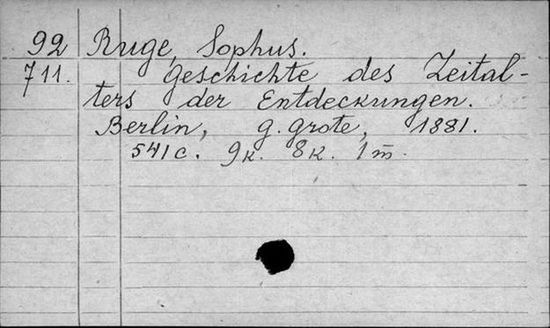 92 Ruge, Sophus.
711. Geschichte des Zeital-
ters der Entdeckungen.
Berlin, G. Grote, 1881.
541 c. 9 к. 8 к. 1 m̄.